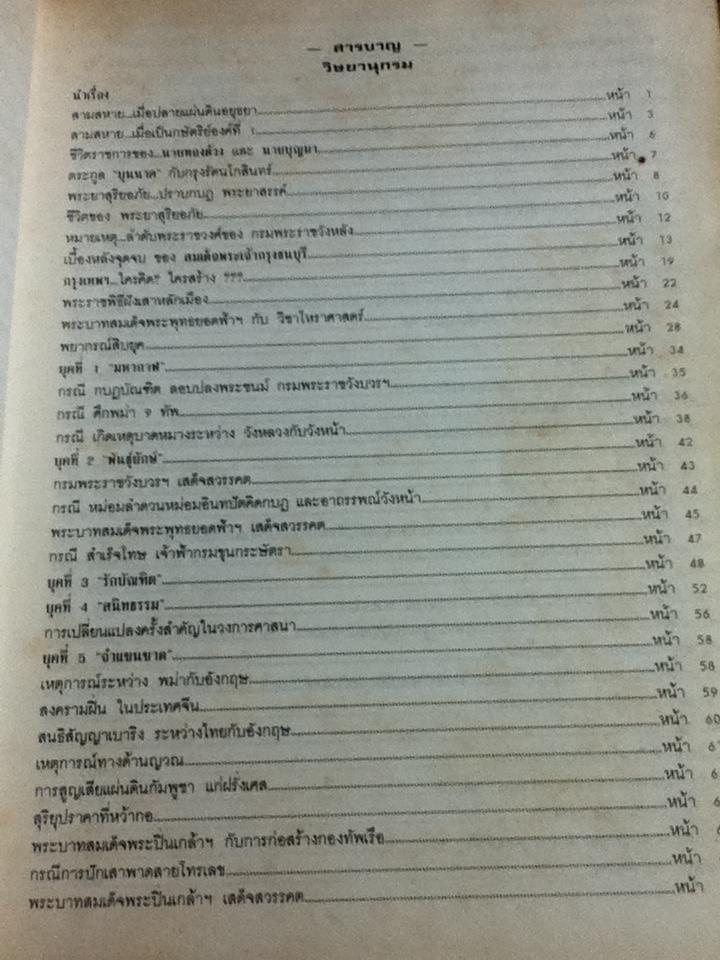 — สารบาญ —
วิษยานุกรม
นำเรื่อง
สามสหาย...เมื่อปลายแผ่นดินอยุธยา หน้า 1
สามสหาย...เมื่อเป็นกษัตริย์องค์ที่ 1 หน้า 3
ชีวิตราชการของ...นายทองด้วง และ นายบุญมา หน้า 6
ตระกูล "บุนนาค" กับกรุงรัตนโกสินทร์ หน้า 7
พระยาสุริยอภัย...ปราบกบฏ พระยาสรรค์ หน้า 8
ชีวิตของ พระยาสุริยอภัย หน้า 10
หมายเหตุ...ลำดับพระราชวงศ์ของ กรมพระราชวังหลัง หน้า 12
เบื้องหลังจุดจบ ของ สมเด็จพระเจ้ากรุงธนบุรี หน้า 13
กรุงเทพฯ...ใครคิด? ใครสร้าง ??? หน้า 19
พระราชพิธีฝังเสาหลักเมือง หน้า 22
พระบาทสมเด็จพระพุทธยอดฟ้าฯ กับ วิชาโหราศาสตร์ หน้า 24
พยากรณ์สิบยุค หน้า 28
ยุคที่ 1 "มหากาฬ" หน้า 34
กรณี กบฏบัณฑิต ลอบปลงพระชนม์ กรมพระราชวังบวรฯ หน้า 35
กรณี ศึกพม่า 9 ทัพ หน้า 36
กรณี เกิดเหตุบาดหมางระหว่าง วังหลวงกับวังหน้า หน้า 38
ยุคที่ 2 "พันธุ์ยักษ์" หน้า 42
กรมพระราชวังบวรฯ เสด็จสวรรคต หน้า 43
กรณี หม่อมลำดวนหม่อมอินทปัตคิดกบฏ และอาถรรพณ์วังหน้า หน้า 44
พระบาทสมเด็จพระพุทธยอดฟ้าฯ เสด็จสวรรคต หน้า 45
กรณี สำเร็จโทษ เจ้าฟ้ากรมขุนกระษัตรา หน้า 47
ยุคที่ 3 "รักบัณฑิต" หน้า 48
ยุคที่ 4 "สนิทธรรม" หน้า 52
การเปลี่ยนแปลงครั้งสำคัญในวงการศาสนา หน้า 56
ยุคที่ 5 "จำแขนขาด" หน้า 58
เหตุการณ์ระหว่าง พม่ากับอังกฤษ หน้า 58
สงครามฝิ่น ในประเทศจีน หน้า 59
สนธิสัญญาเบาริง ระหว่างไทยกับอังกฤษ หน้า 60
เหตุการณ์ทางด้านญวณ หน้า
การสูญเสียแผ่นดินกัมพูชา แก่ฝรั่งเศส หน้า
สุริยุปราคาที่หว้ากอ หน้า
พระบาทสมเด็จพระปิ่นเกล้าฯ กับการก่อสร้างกองทัพเรือ หน้า
กรณีการปักเสาพาดสายโทรเลข หน้า
พระบาทสมเด็จพระปิ่นเกล้าฯ เสด็จสวรรคต หน้า